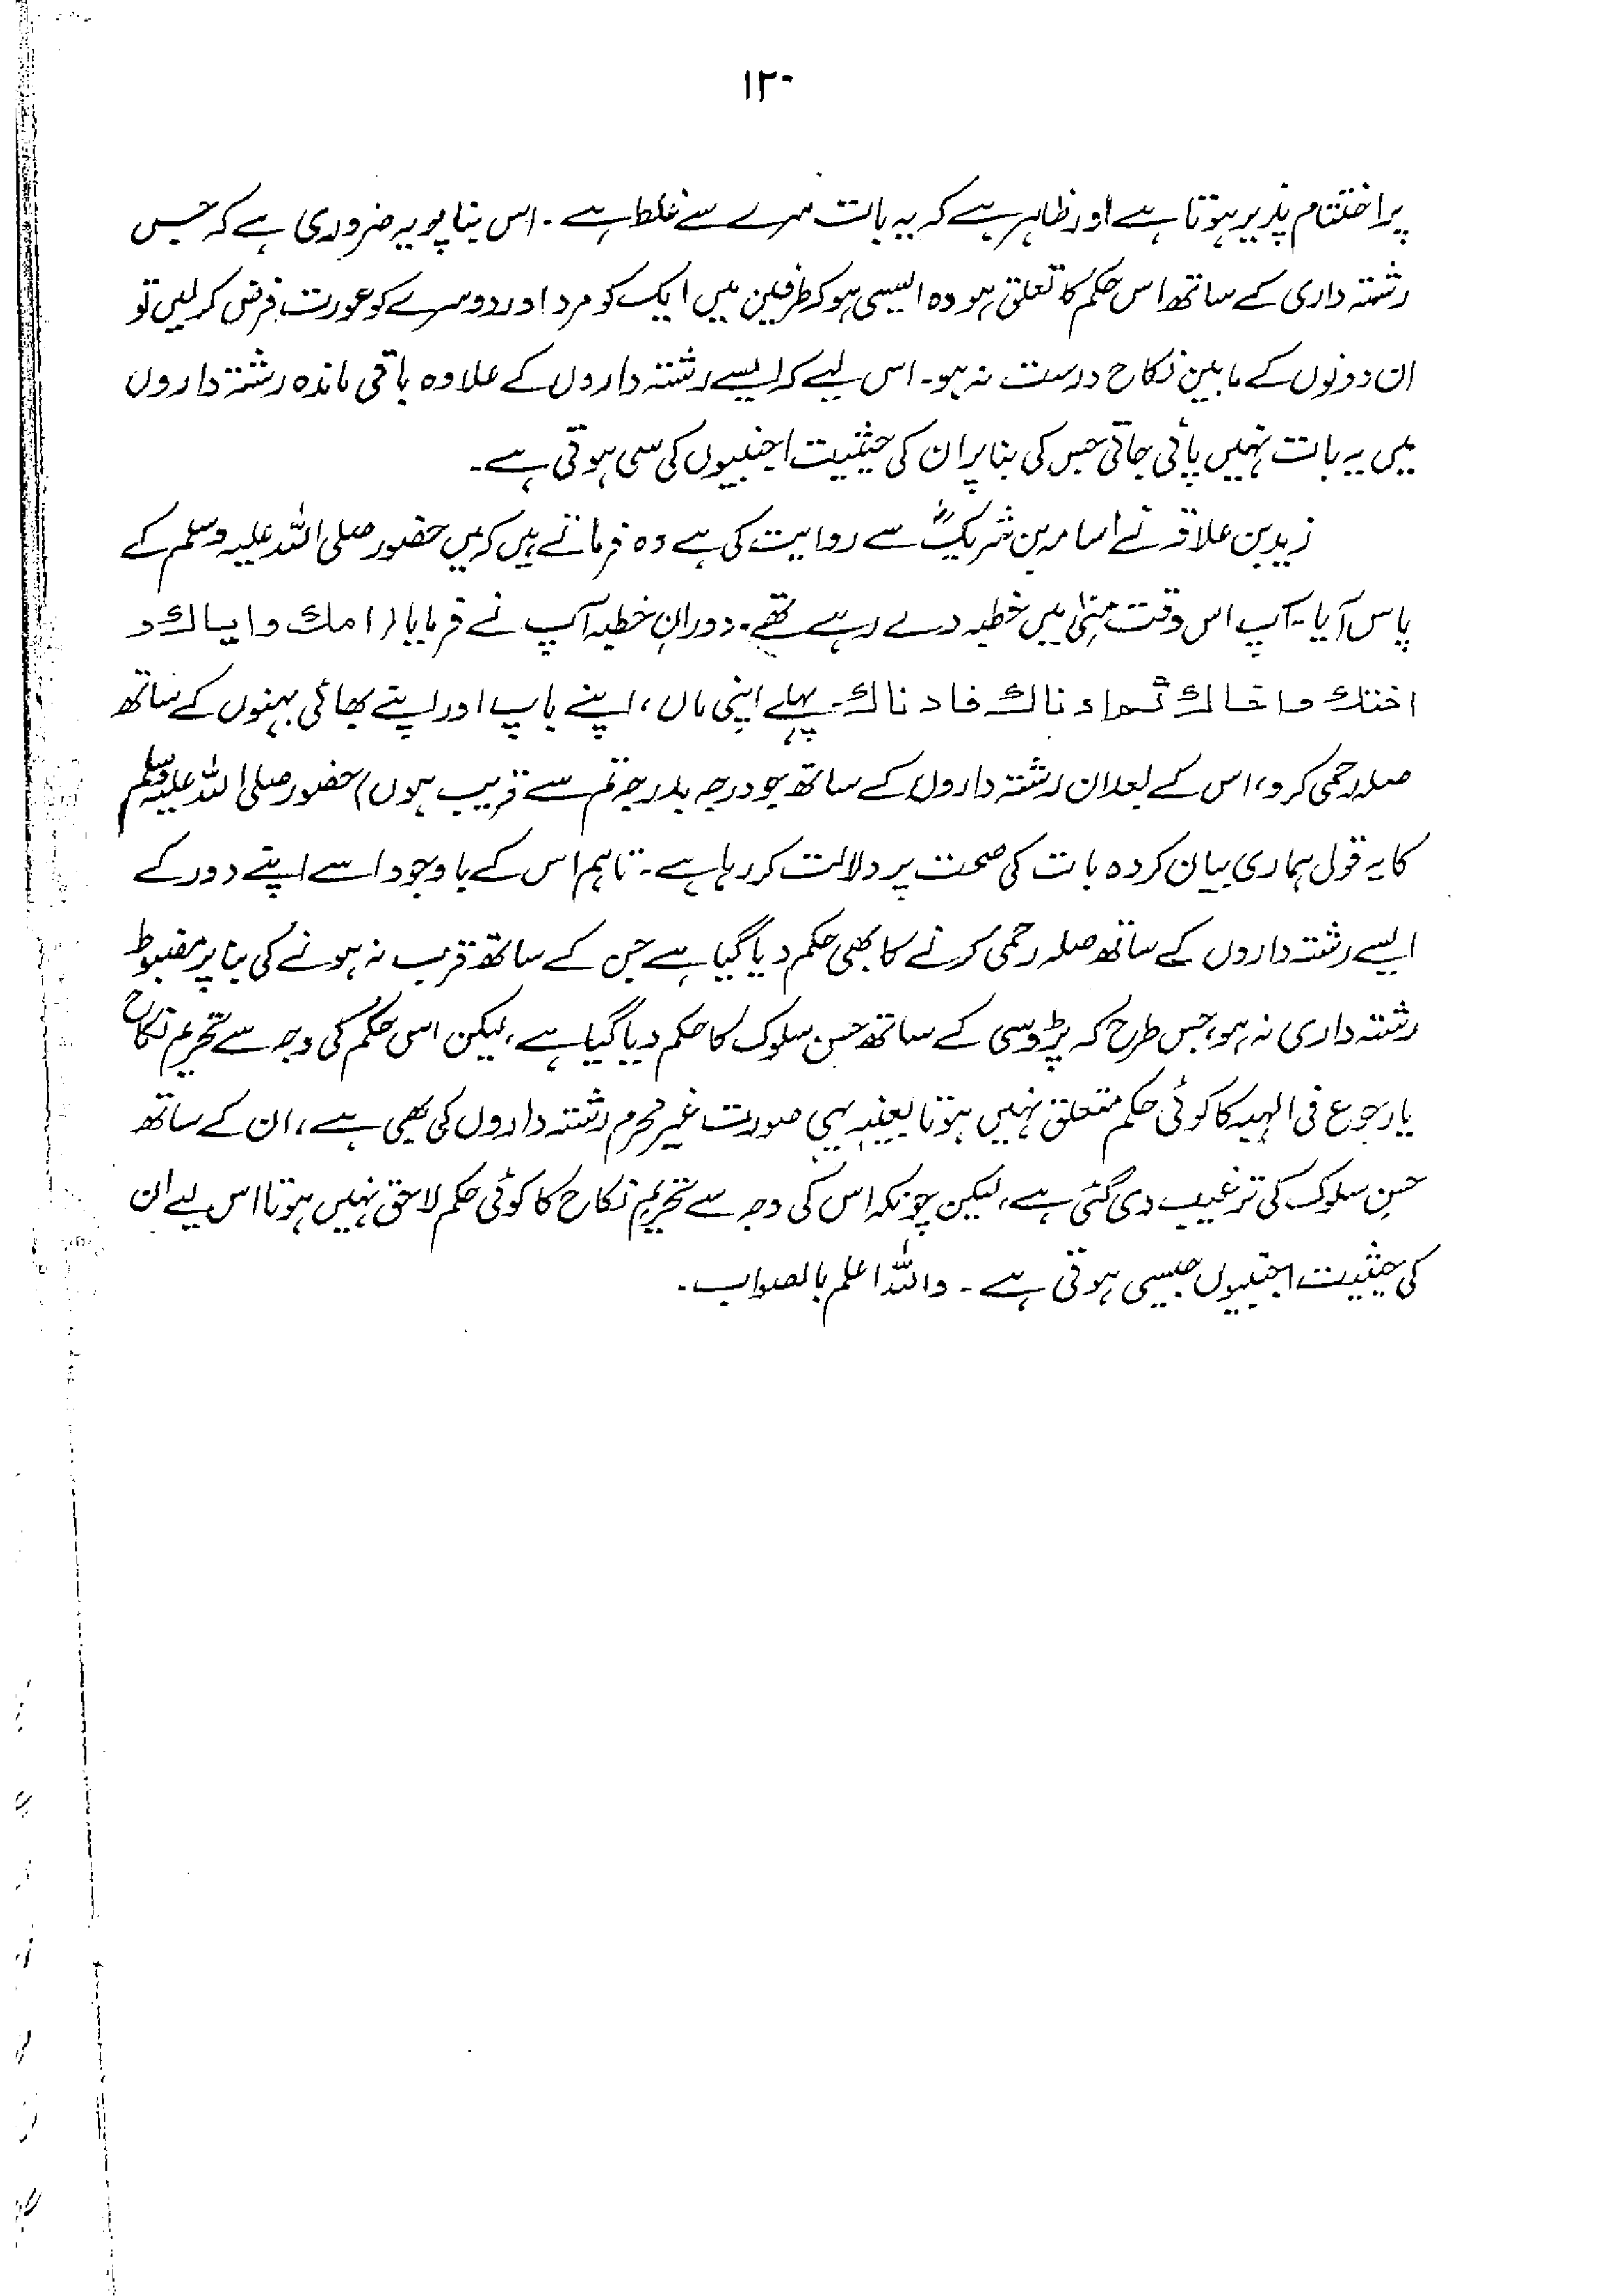 ۱۲۰
پر اختتام پذیر ہوتا ہے اور ظاہر ہے کہ یہ بات سرے سے غلط ہے۔ اس بنا پو یہ ضروری ہے کہ جس
رشتہ داری کے ساتھ اس حکم کا تعلق ہو وہ ایسی ہو کہ طرفین میں ایک کو مرد اور دوسرے کو عورت فرض کر لیں تو
ان دونوں کے مابین نکاح درست نہ ہو۔ اس لیے کہ ایسے رشتہ داروں کے علاوہ باقی ماندہ رشتہ داروں
میں یہ بات نہیں پائی جاتی جس کی بنا پر ان کی حیثیت اجنبیوں کی سی ہوتی ہے۔
زید بن علاقہ نے اسامہ بن شریکؓ سے روایت کی ہے وہ فرماتے ہیں کہ میں حضور صلی اللہ علیہ وسلم کے
پاس آیا۔ آپ اس وقت منٰی میں خطبہ دے رہے تھے۔ دورانِ خطبہ آپ نے فرمایا (امك واباك و
اختك واخاك ثم ادناك فادناك۔ پہلے اپنی ماں، اپنے باپ اور اپنے بھائی بہنوں کے ساتھ
صلہ رحمی کرو، اس کے بعد ان رشتہ داروں کے ساتھ جو درجہ بدرجہ تم سے قریب ہوں) حضور صلی اللہ علیہ وسلم
کا یہ قول ہماری بیان کردہ بات کی صحت پر دلالت کر رہا ہے۔ تاہم اس کے باوجود اسے اپنے دور کے
ایسے رشتہ داروں کے ساتھ صلہ رحمی کرنے کا بھی حکم دیا گیا ہے جن کے ساتھ قرب نہ ہونے کی بنا پر مضبوط
رشتہ داری نہ ہو، جس طرح کہ پڑوسی کے ساتھ حسن سلوک کا حکم دیا گیا ہے، لیکن اس حکم کی وجہ سے تحریم نکاح
یا رجوع فی الہبہ کا کوئی حکم متعلق نہیں ہوتا بعینہٖ یہی صورت غیر محرم رشتہ داروں کی بھی ہے، ان کے ساتھ
حسنِ سلوک کی ترغیب دی گئی ہے، لیکن چونکہ اس کی وجہ سے تحریمِ نکاح کا کوئی حکم لاحق نہیں ہوتا اس لیے ان
کی حیثیت اجنبیوں جیسی ہوتی ہے۔ واللہ اعلم بالصواب۔